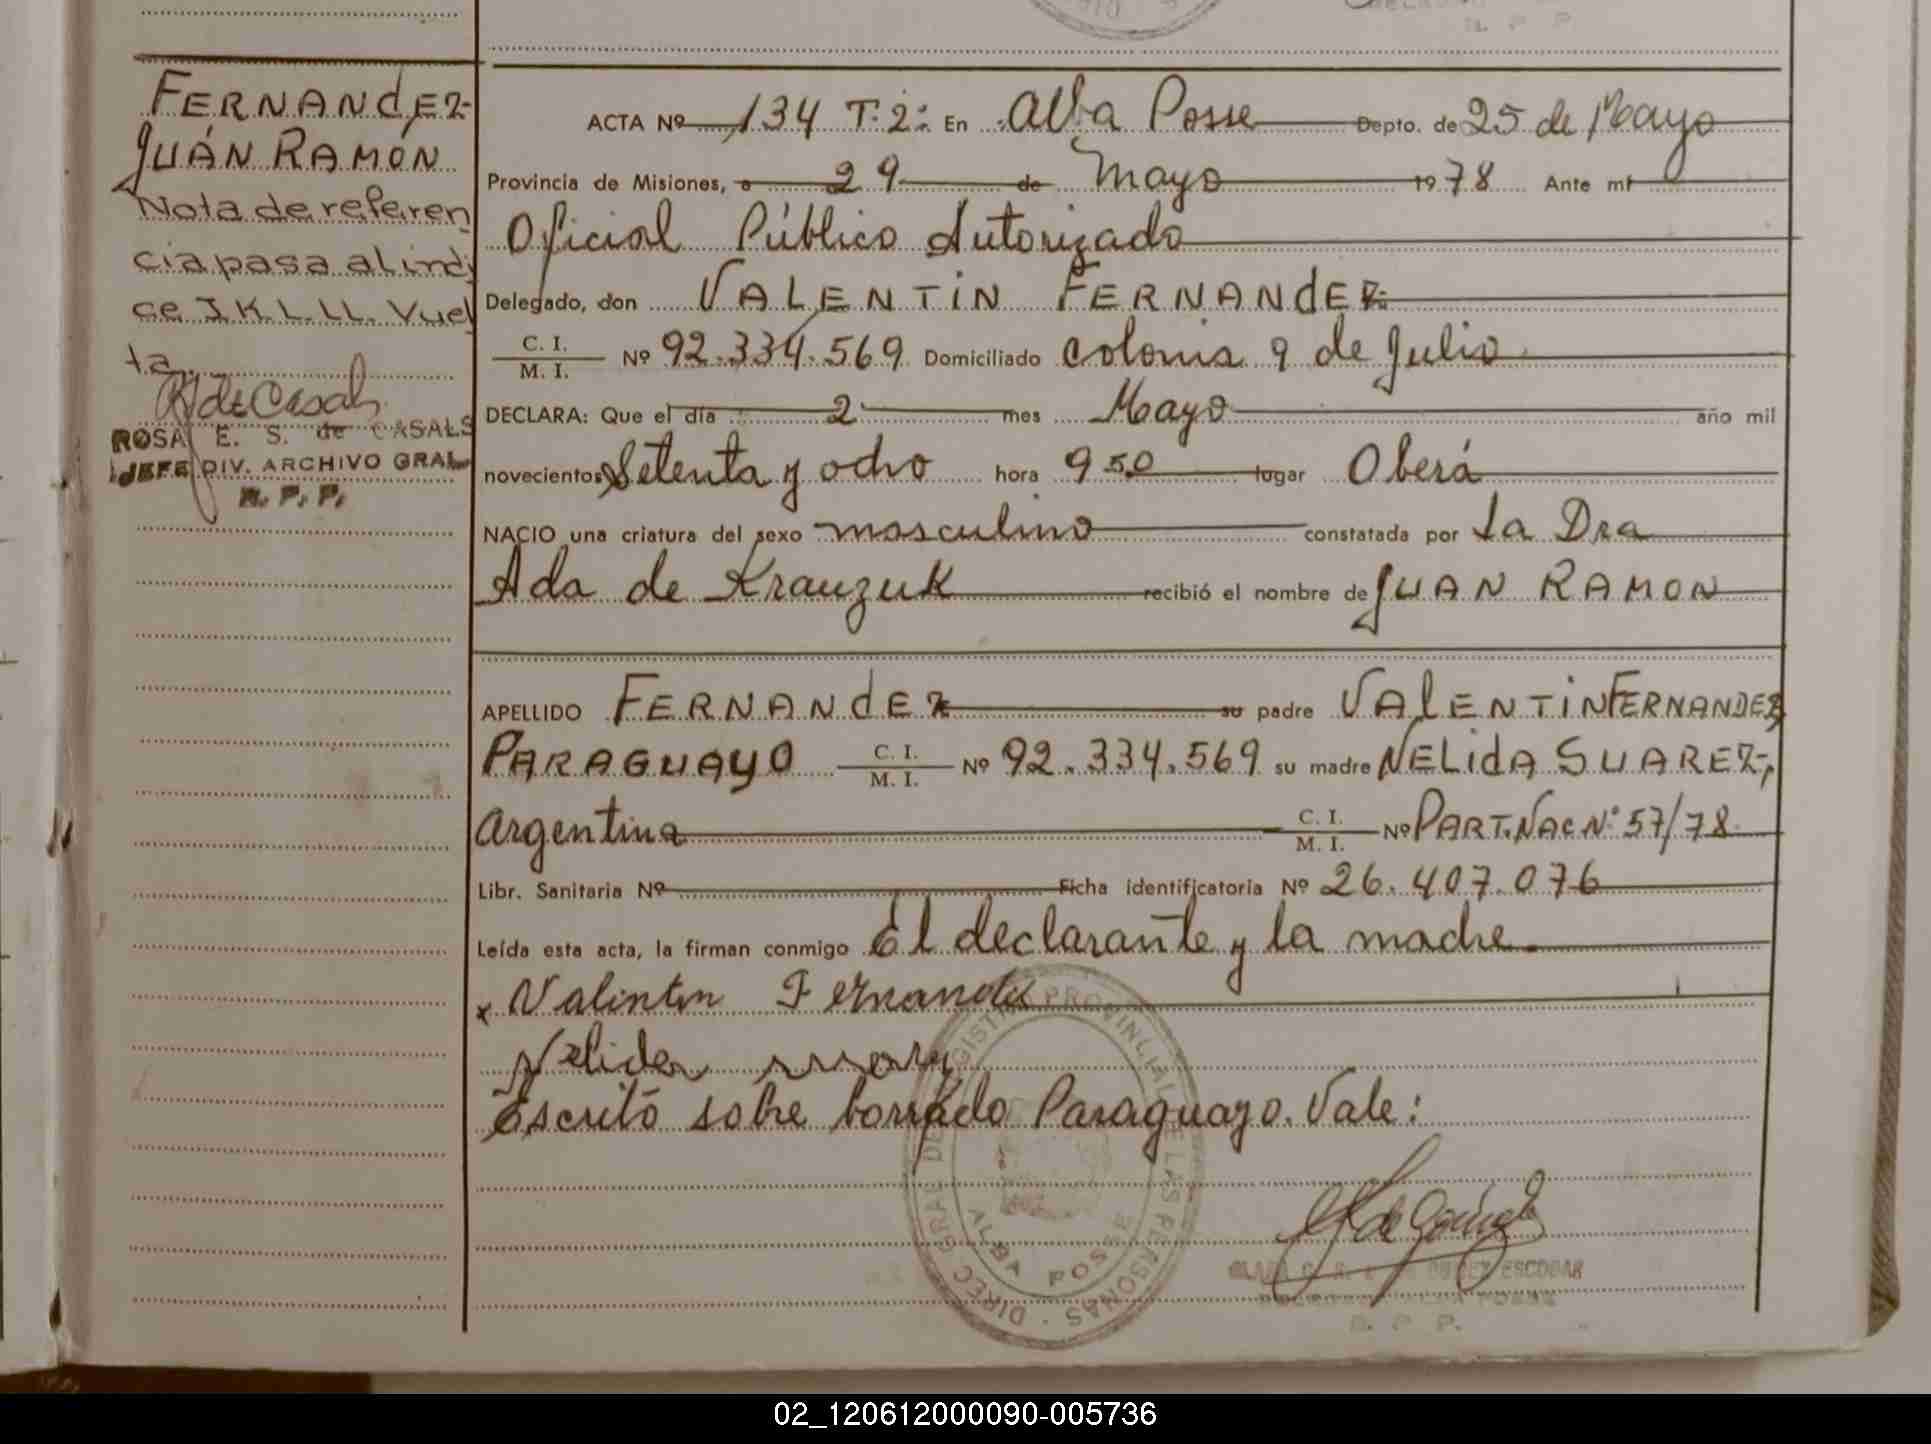 FERNANDEZ
JUÁN RAMÓN
Nota de referen
cia pasa al indi
ce J.K.L.LL. Vuel
ta
R de Casals
ROSA E. S. de CASALS
JEFE DIV. ARCHIVO GRAL
R. P. P.
ACTA Nº 134 T. 2: En Alba Posse Depto. de 25 de Mayo
Provincia de Misiones, a 29 de Mayo 1978 Ante mí
Oficial Público Autorizado
Delegado, don VALENTIN FERNANDEZ
C. I.
M. I. Nº 92.334.569 Domiciliado colonia 9 de Julio
DECLARA: Que el día 2 mes Mayo año mil
novecientos Setenta y ocho hora 9 50 lugar Oberá
NACIO una criatura del sexo masculino constatada por La Dra
Ada de Krauzuk recibió el nombre de JUAN RAMON
APELLIDO FERNANDEZ su padre VALENTIN FERNANDEZ
PARAGUAYO C. I.
M. I. Nº 92.334.569 su madre NELIDA SUAREZ,
Argentina C. I.
M. I. Nº PART. NAC Nº 57/78
Libr. Sanitaria Nº Ficha identificatoria Nº 26.407.076
Leída esta acta, la firman conmigo El declarante y la madre
x Valintin Fernandes
Nelida
Escrito sobre borrado Paraguayo. Vale:
DIREC GRAL DEL REGISTRO PROVINCIAL DE LAS PERSONAS
ALBA POSSE
ESCOBAR
R. P. P.
02_120612000090-005736